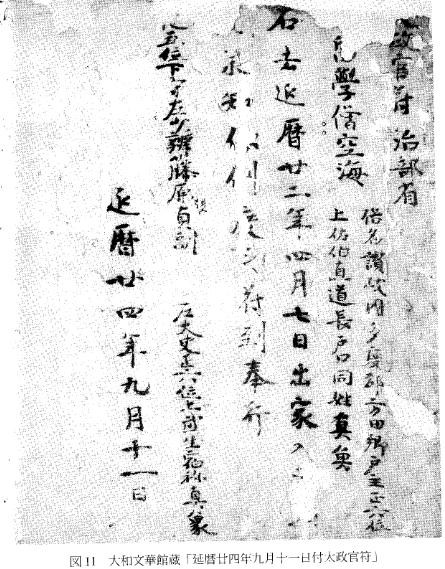 政官符 治部省
學僧空海
俗名讃岐国多度郡方田郷戸主正六位
上佐伯直道長戸口同姓真魚
右去延暦廿二年四月七日出家入
承知依例度之符到奉行
五位下守左少辨藤原貞副
左大史正六位上武生宿祢真象
延暦廿四年九月十一日
図11 大和文華館蔵「延暦廿四年九月十一日付太政官符」